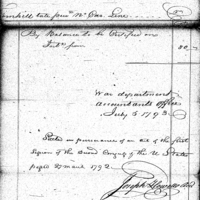 By Balance to be Certified on
80,—
War department
Accountants Office
July 5 1793
Stated in pursuance of an act of the first
Session of the Second Congress of the U States
passed 27 march 1792
Joseph Howell